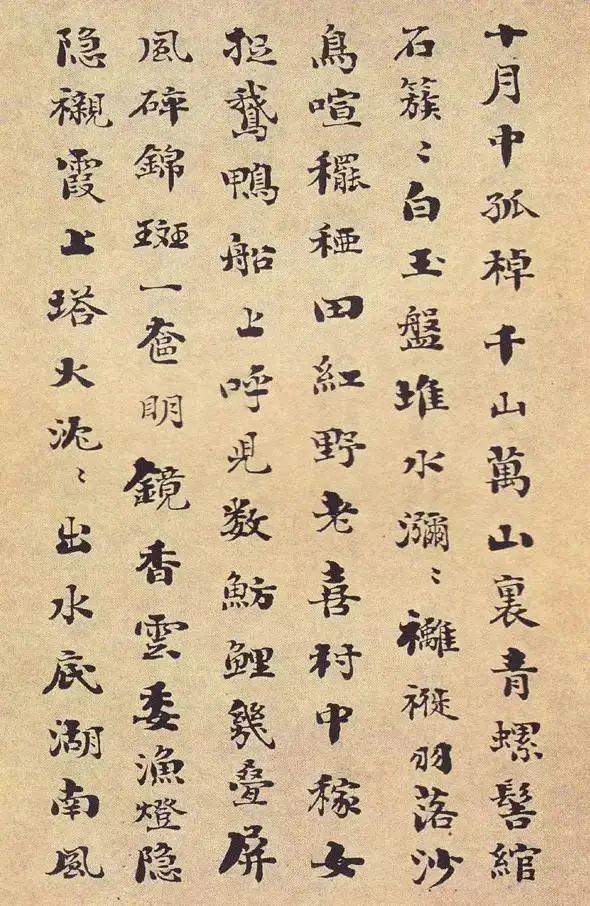 十月中孤棹千山萬山裏青螺髻綰
石簇〻白玉盤堆水瀰〻褵褷羽落沙
鳥喧䆉稏田紅野老喜村中稼女
捉鵝鴨船上呼児数魴鯉幾疊屏
風碎錦斑一奩明鏡香雲委漁燈隐
隐襯霞上塔火〻出水底湖南風